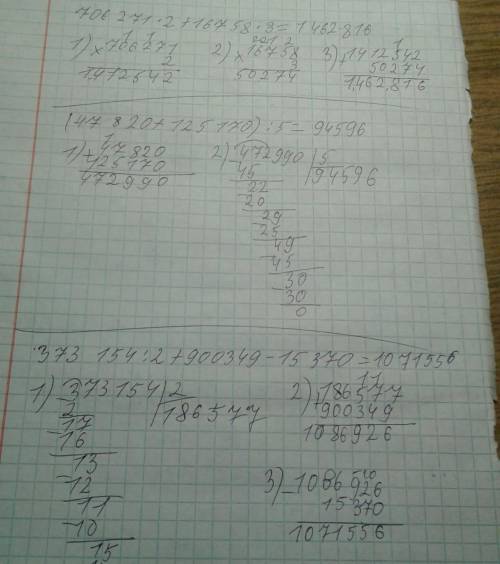 706 271 : 2 + 16758 : 3 = 1 462 816
1) × 706271 2) × 16758 3) + 1412542
2 3 50274
1,412542 50274 1,462,816
(47 820 + 125 170) : 5 = 94596
1) + 47820 2) 472990 | 5
425170 45 94596
472990 22
20
29
25
49
45
30
30
0
373 154 : 2 + 900349 - 15 370 = 1071556
1) 373154 | 2 2) + 186577
2 186577 900349
17 1086926
16
13 3) - 1086926
12 15 370
11 1071556
10
15